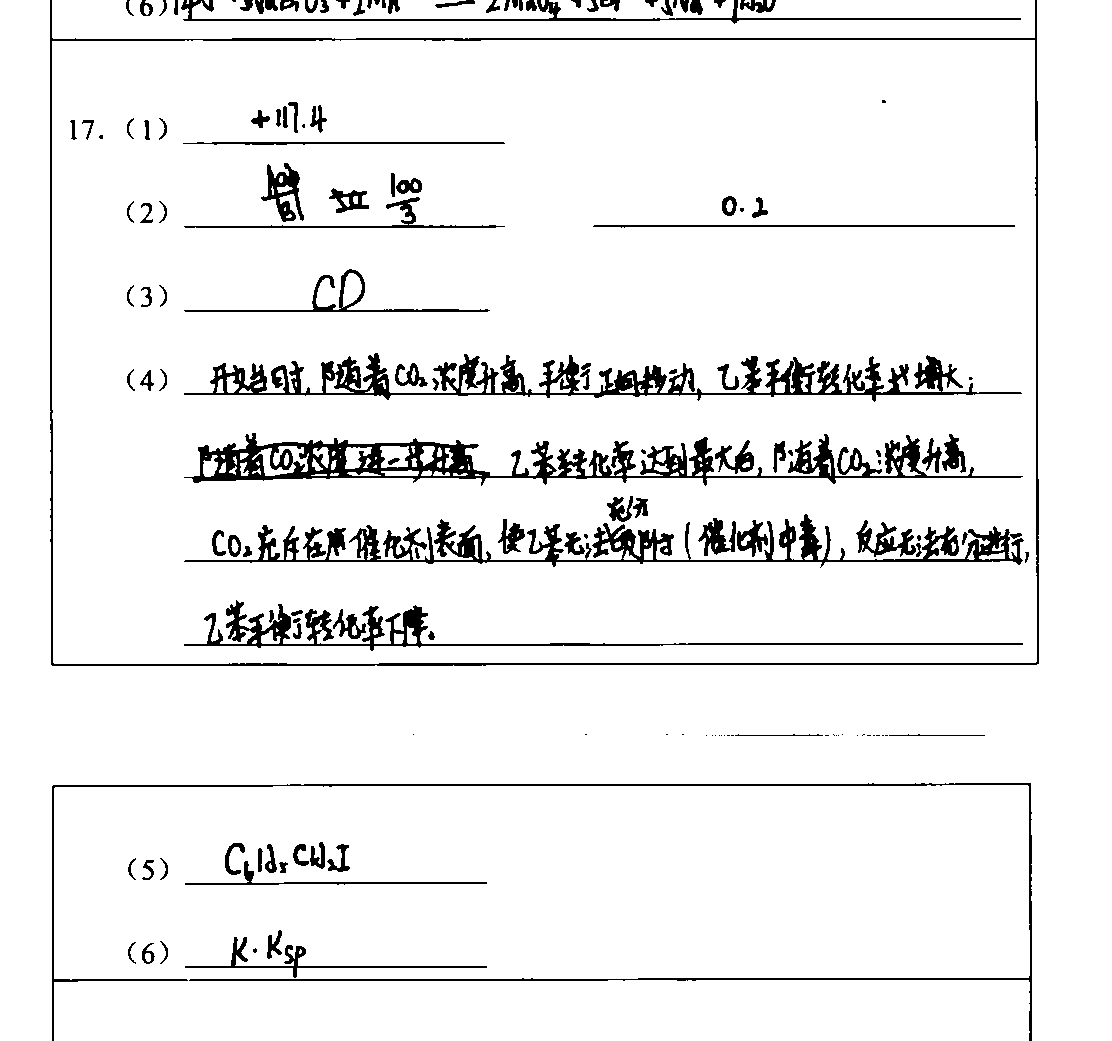 (6)
17. (1) +117.4
(2) 100/3 0.2
(3) CD
(4) 开始时,随着CO₂浓度升高,平衡正向移动,乙苯平衡转化率增大;
随着CO₂浓度进一步升高, 乙苯转化率达到最大后,随着CO₂浓度升高,
充分
CO₂充斥在催化剂表面,使乙苯无法吸附(催化剂中毒),反应无法充分进行,
乙苯平衡转化率下降。
(5) C₆H₅CH₂I
(6) K·Ksp